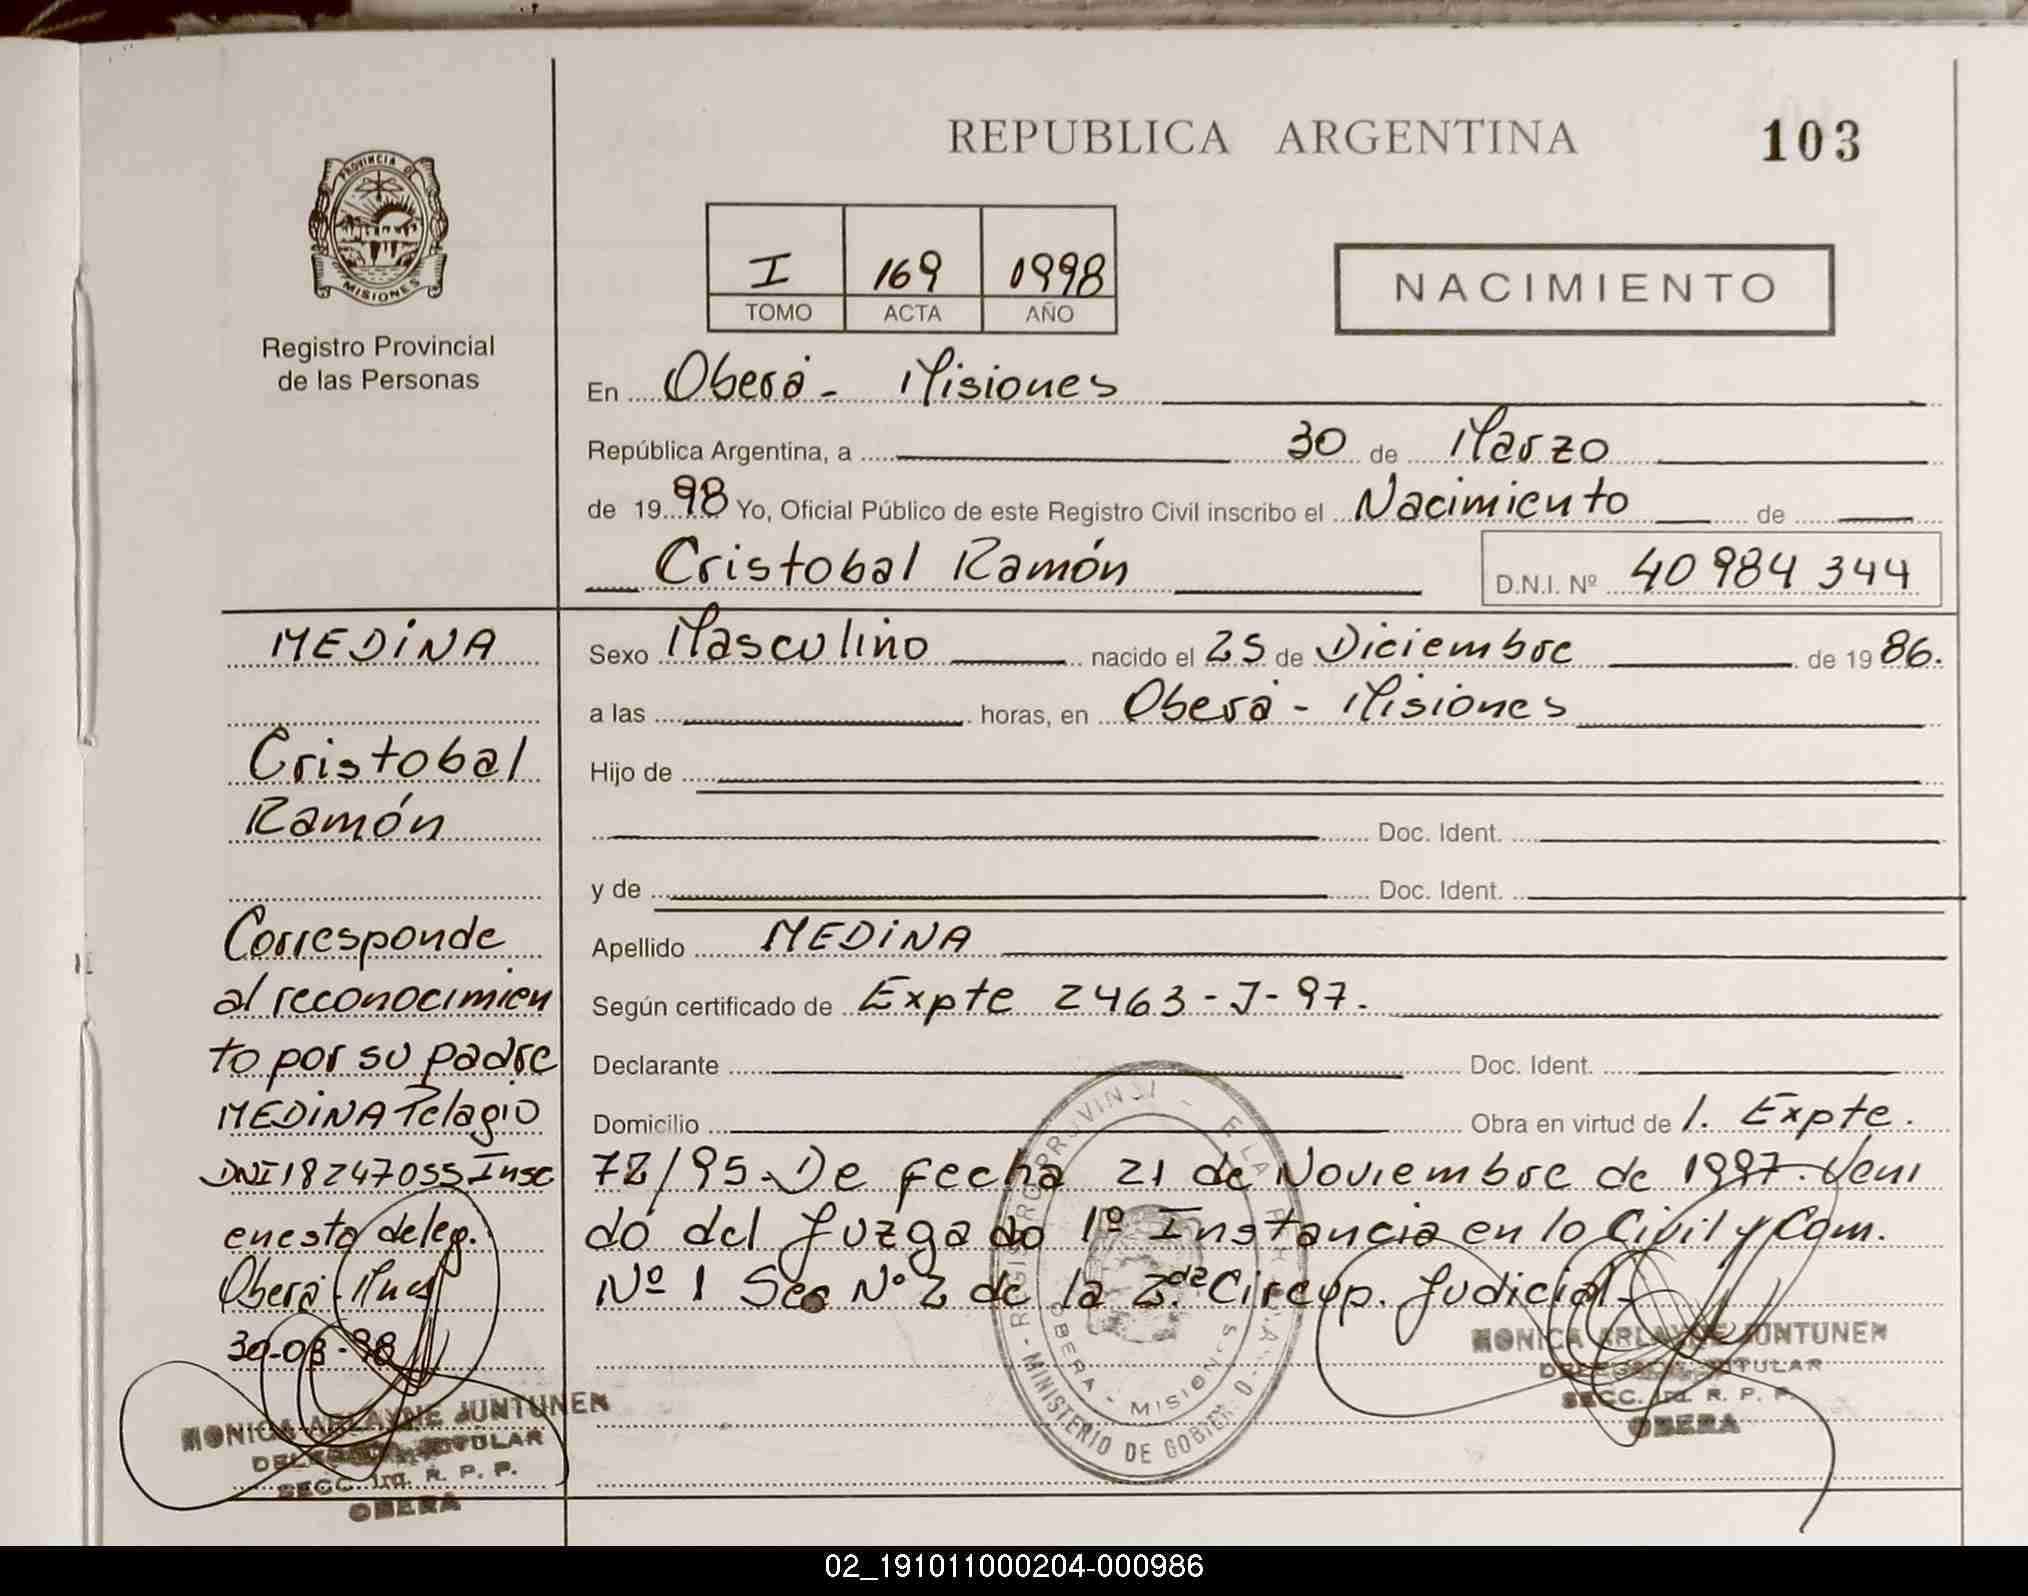 REPUBLICA ARGENTINA
103
PROVINCIA DE
MISIONES
Registro Provincial
de las Personas
I 169 1998
TOMO ACTA AÑO
NACIMIENTO
En Oberá - Misiones
República Argentina, a 30 de Marzo
de 1998 Yo, Oficial Público de este Registro Civil inscribo el Nacimiento de
Cristobal Ramón D.N.I. Nº 40 984 344
MEDINA
Cristobal
Ramón
Corresponde
al reconocimien
to por su padre
MEDINA Pelagio
DNI 18247055 Insc
en esta deleg.
Oberá
30-03-98
MONICA ARLAYNE JUNTUNEN
TITULAR
SECC. 1ra. R. P. P.
OBERA
Sexo Masculino nacido el 25 de Diciembre de 1986.
a las horas, en Oberá - Misiones
Hijo de
Doc. Ident.
y de Doc. Ident.
Apellido MEDINA
Según certificado de Expte 2463-J-97.
Declarante Doc. Ident.
Domicilio Obra en virtud de 1. Expte.
72/95. De fecha 21 de Noviembre de 1997. Veni
do del Juzgado 1º Instancia en lo Civil y Com.
Nº 1 Sec Nº 2 de la 2da Circup. Judicial.
MINISTERIO DE GOBIERNO
OBERA - MISIONES
MONICA ARLAYNE JUNTUNEN
TITULAR
SECC. 1ra. R. P. P.
OBERA
02_191011000204-000986